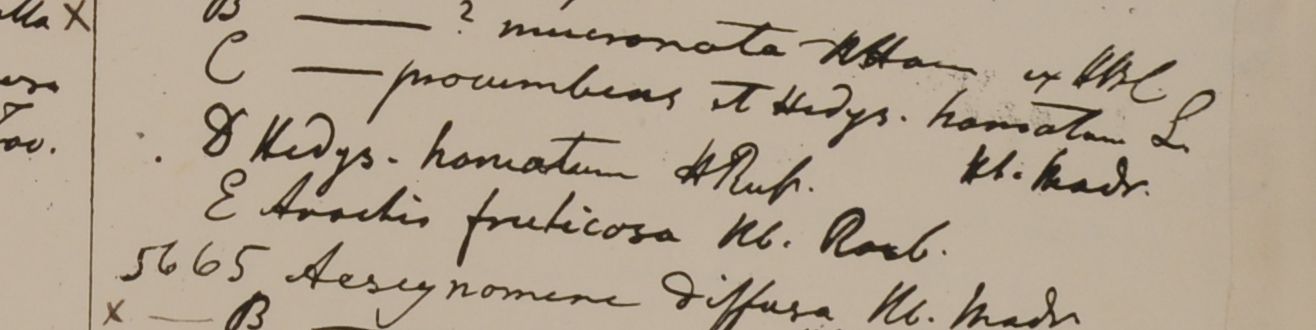 B —— ? mucronata HHam ex HBC
C — procumbens et Hedys. hamatum L.
D Hedys. hamatum HRuss. Hb. Madr.
E Arachis fruticosa Hb. Roxb.
5665 Aeschynomene diffusa Hb. Madr
x — B